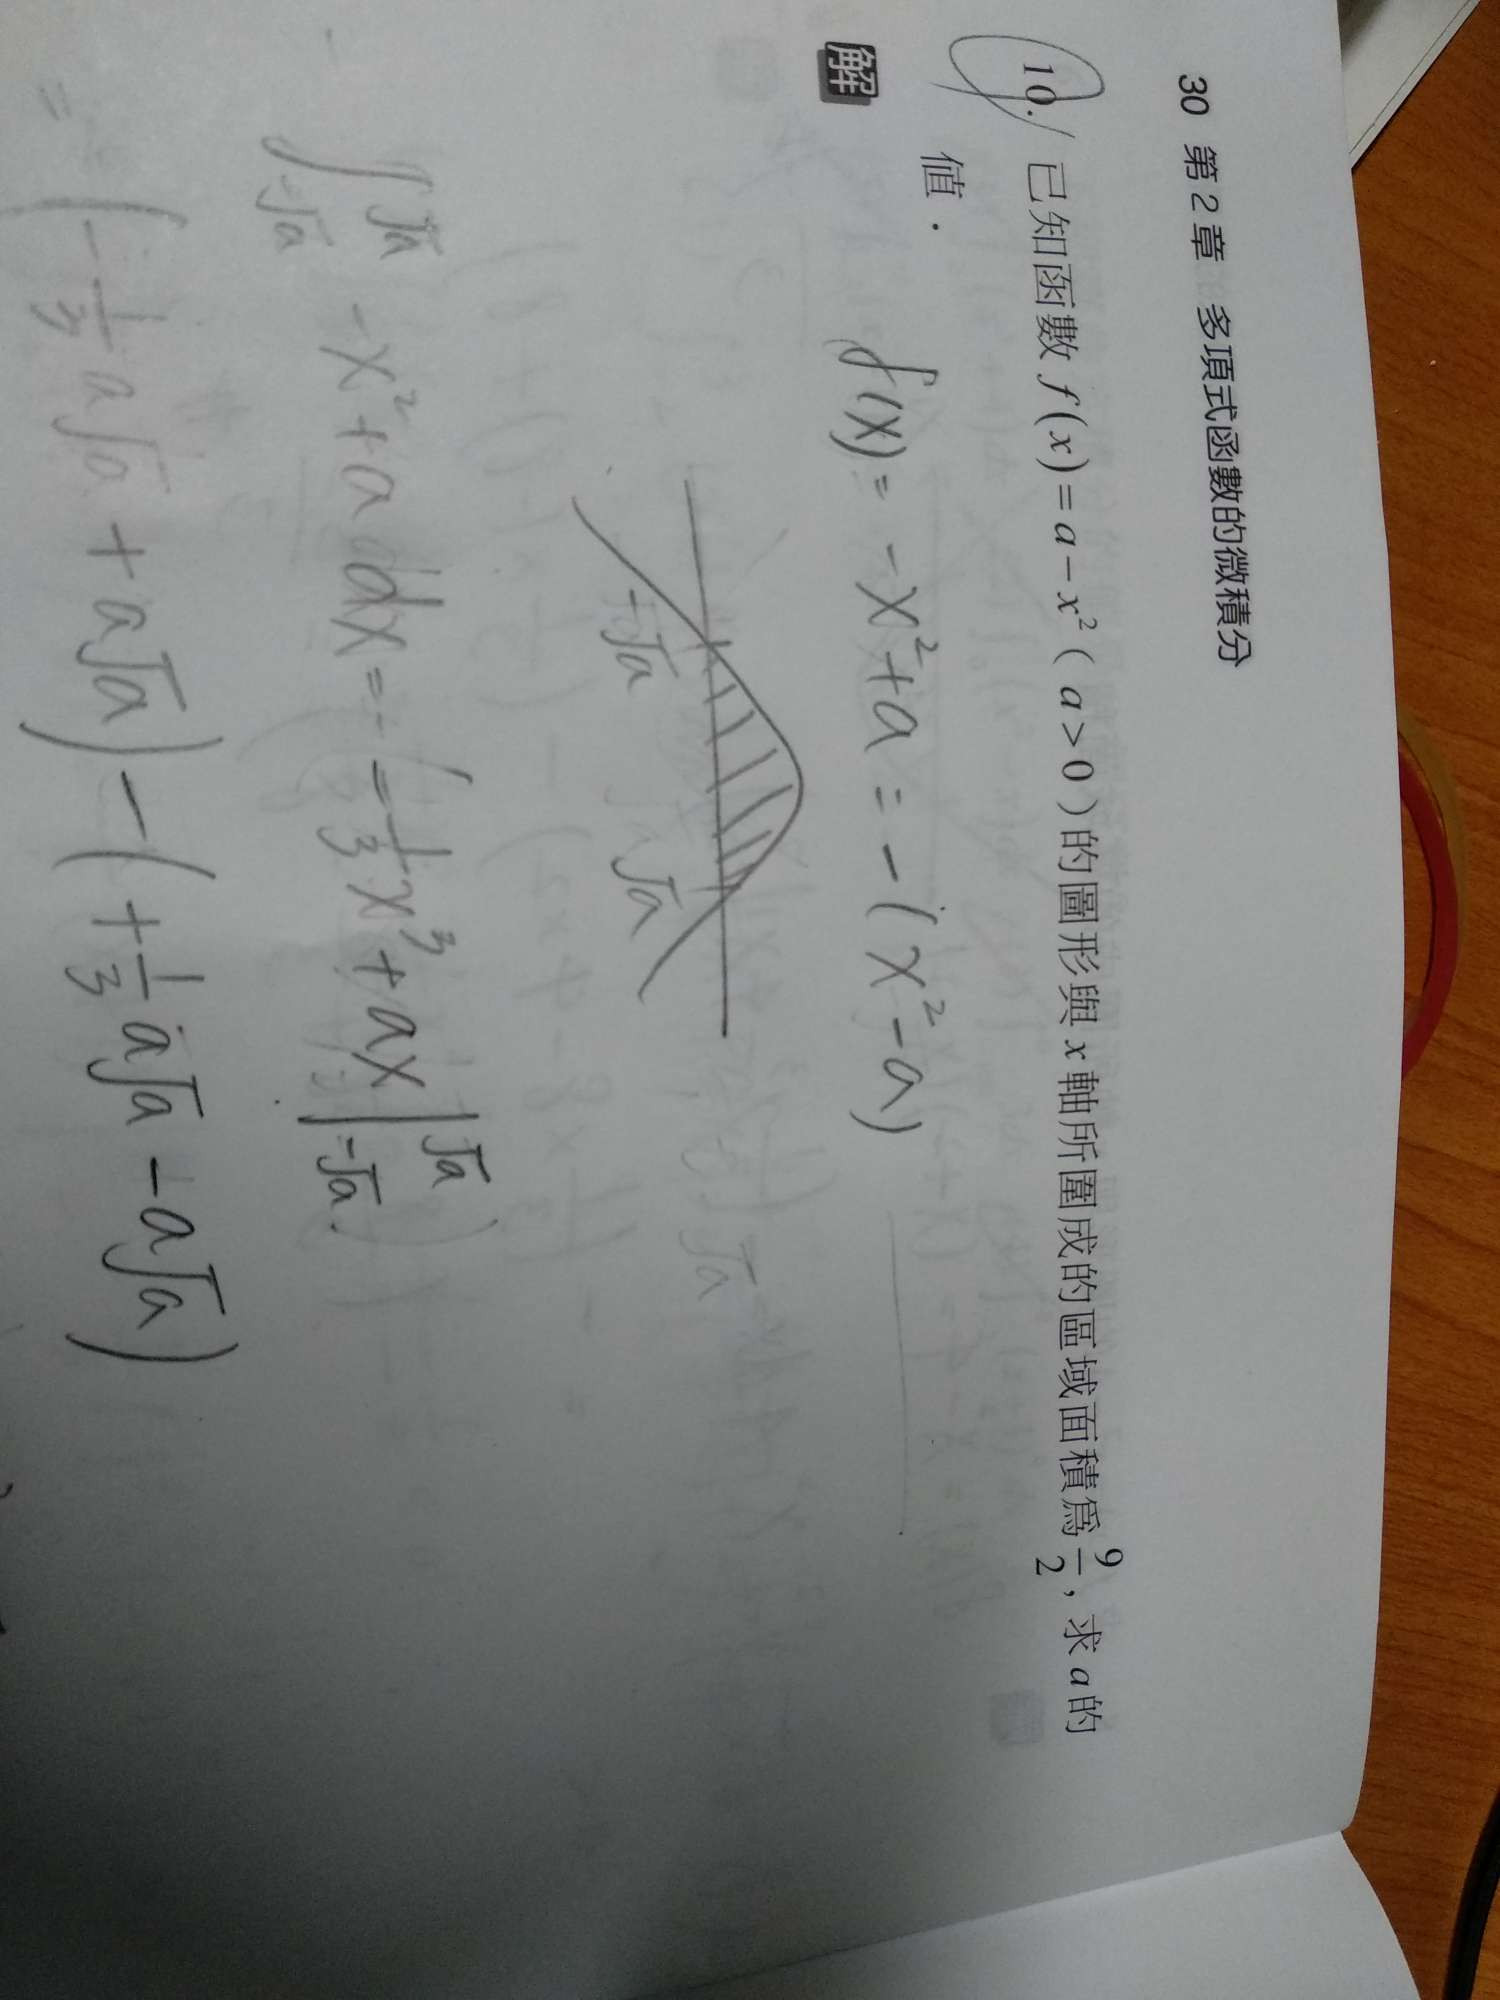 30 第2章 多項式函數的微積分
10. 已知函數 f(x)=a-x² ( a>0 ) 的圖形與 x 軸所圍成的區域面積為 9/2 , 求 a 的
值．
解
f(x) = -x²+a = -(x²-a)
-√a √a
∫_{-√a}^{√a} -x²+a dx = -1/3 x³+ax |_{-√a}^{√a}
= (-1/3 a√a + a√a) - (+1/3 a√a - a√a)